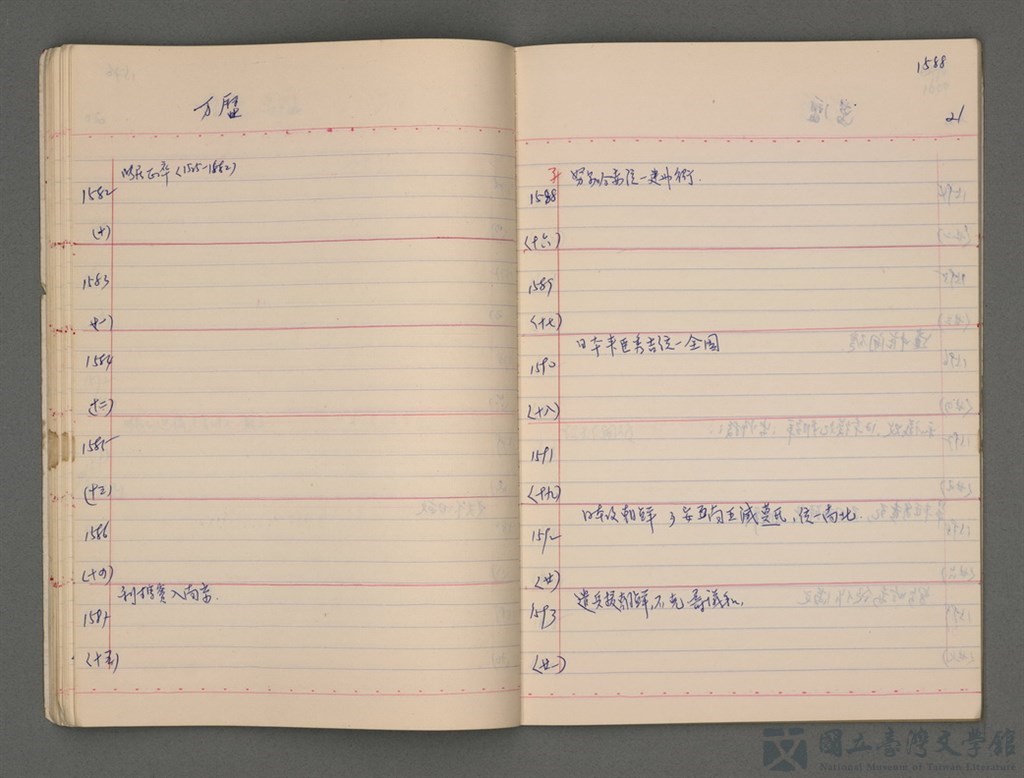 万曆
張居正卒(1525-1582)
1582
(十)
1583
(十一)
1584
(十二)
1585
(十三)
1586
(十四)
利瑪竇入南京.
1587
(十五)
1588
21
子 努爾哈赤統一建州衛.
1588
(十六)
1589
(十七)
日本丰臣秀吉統一全國
1590
(十八)
1591
(十九)
日本攻朝鮮 安南 滅莫氏,統一南北
1592
(廿)
遣兵援朝鮮,不克 議和.
1593
(廿一)
國立臺灣文學館
National Museum of Taiwan Literature